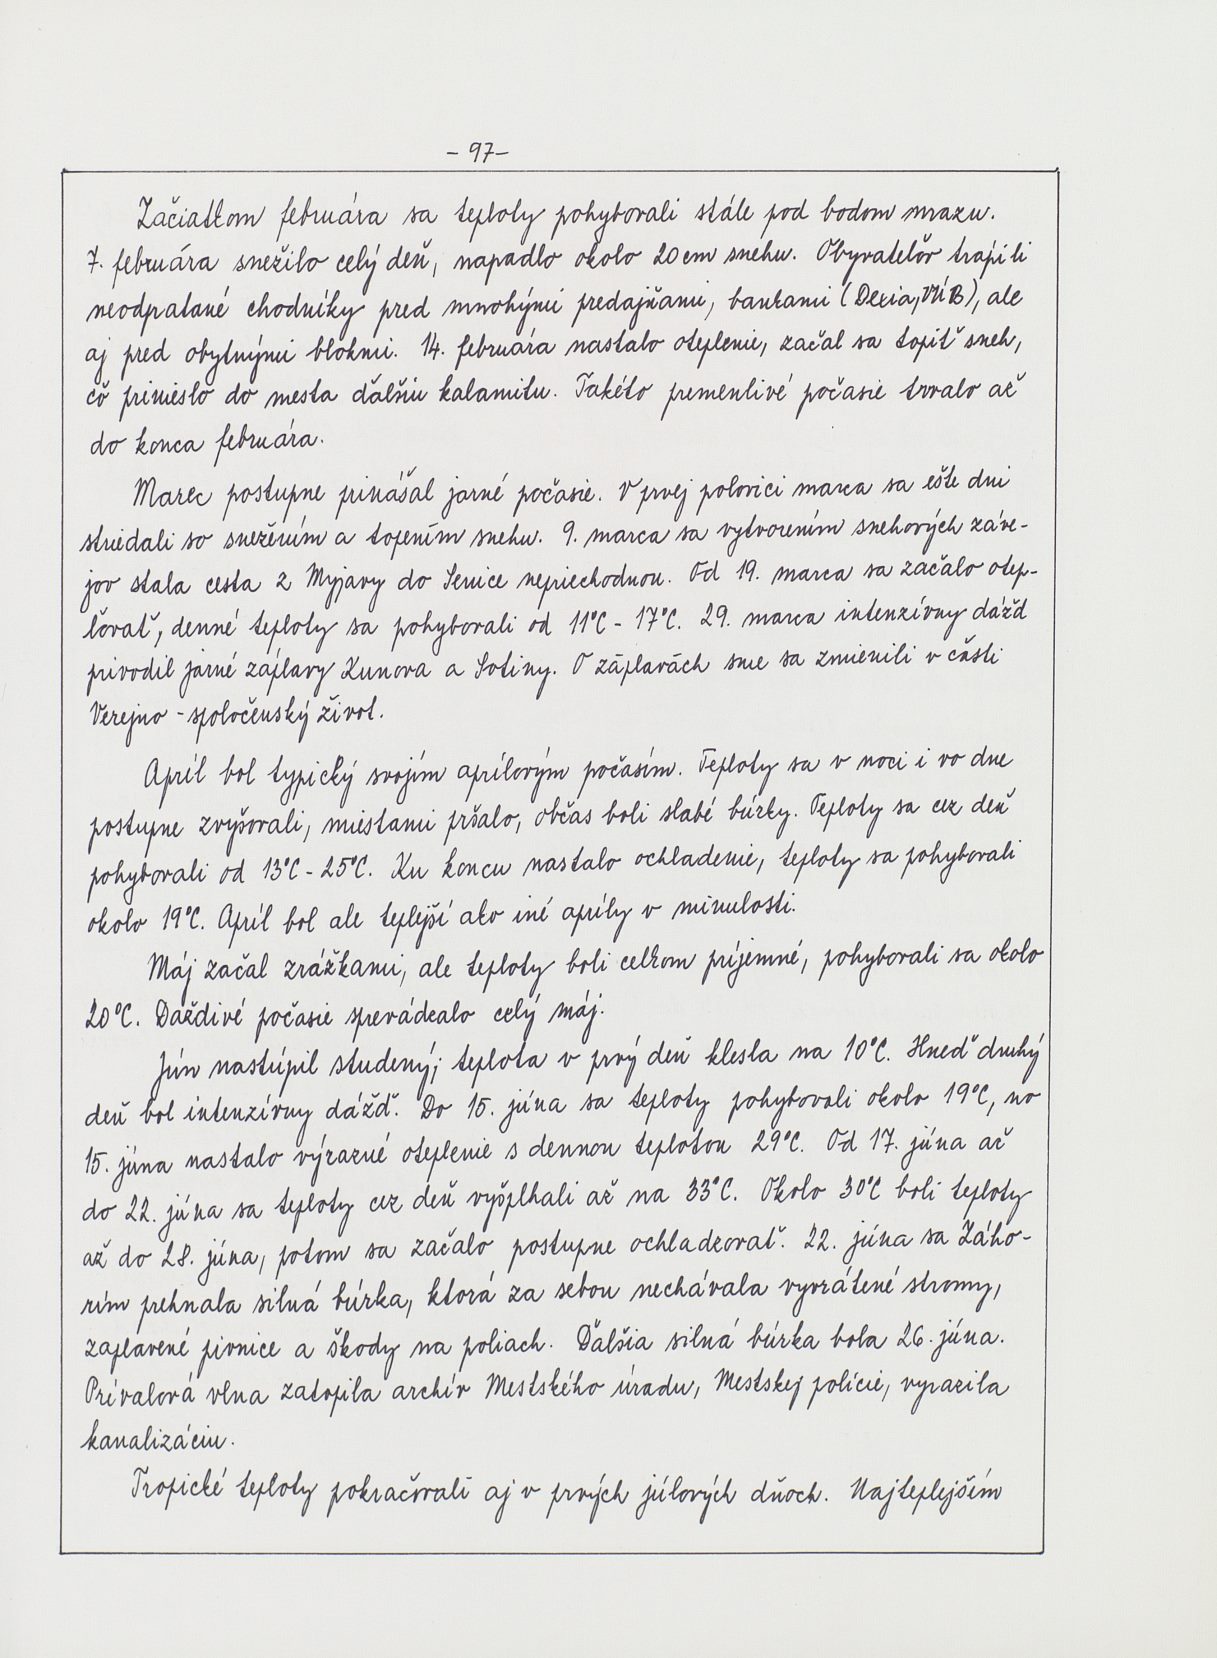 - 97-
Začiatkom februára sa teploty pohybovali stále pod bodom mrazu.
7. februára snežilo celý deň, napadlo okolo 20cm snehu. Obyvateľov trápili
neodpratané chodníky pred mnohými predajňami, bankami (Dexia, VÚB), ale
aj pred obytnými blokmi. 14. februára nastalo oteplenie, začal sa topiť sneh,
čo prinieslo do mesta ďalšiu kalamitu. Takéto premenlivé počasie trvalo až
do konca februára.
Marec postupne prinášal jarné počasie. V prvej polovici marca sa ešte dni
striedali so snežením a topením snehu. 9. marca sa vytvorením snehových záve-
jov stala cesta z Myjavy do Senice nepriechodnou. Od 19. marca sa začalo otep-
ľovať, denné teploty sa pohybovali od 11°C - 17°C. 29. marca intenzívny dážď
privodil jarné záplavy Kunova a Sotiny. O záplavách sme sa zmienili v časti
Verejno - spoločenský život.
Apríl bol typický svojím aprílovým počasím. Teploty sa v noci i vo dne
postupne zvyšovali, miestami pršalo, občas boli slabé búrky. Teploty sa cez deň
pohybovali od 13°C - 25°C. Ku koncu nastalo ochladenie, teploty sa pohybovali
okolo 19°C. Apríl bol ale teplejší ako iné apríly v minulosti.
Máj začal zrážkami, ale teploty boli celkom príjemné, pohybovali sa okolo
20°C. Daždivé počasie sprevádzalo celý máj.
Jún nastúpil studený; teplota v prvý deň klesla na 10°C. Hneď druhý
deň bol intenzívny dážď. Do 15. júna sa teploty pohybovali okolo 19°C, no
15. júna nastalo výrazné oteplenie s dennou teplotou 29°C. Od 17. júna až
do 22. júna sa teploty cez deň vyšplhali až na 33°C. Okolo 30°C boli teploty
až do 28. júna, potom sa začalo postupne ochladzovať. 22. júna sa Záho-
rím prehnala silná búrka, ktorá za sebou nechávala vyvrátené stromy,
zaplavené pivnice a škody na poliach. Ďalšia silná búrka bola 26. júna.
Prívalová vlna zatopila archív Mestského úradu, Mestskej polície, vyrazila
kanalizáciu.
Tropické teploty pokračovali aj v prvých júlových dňoch. Najteplejším